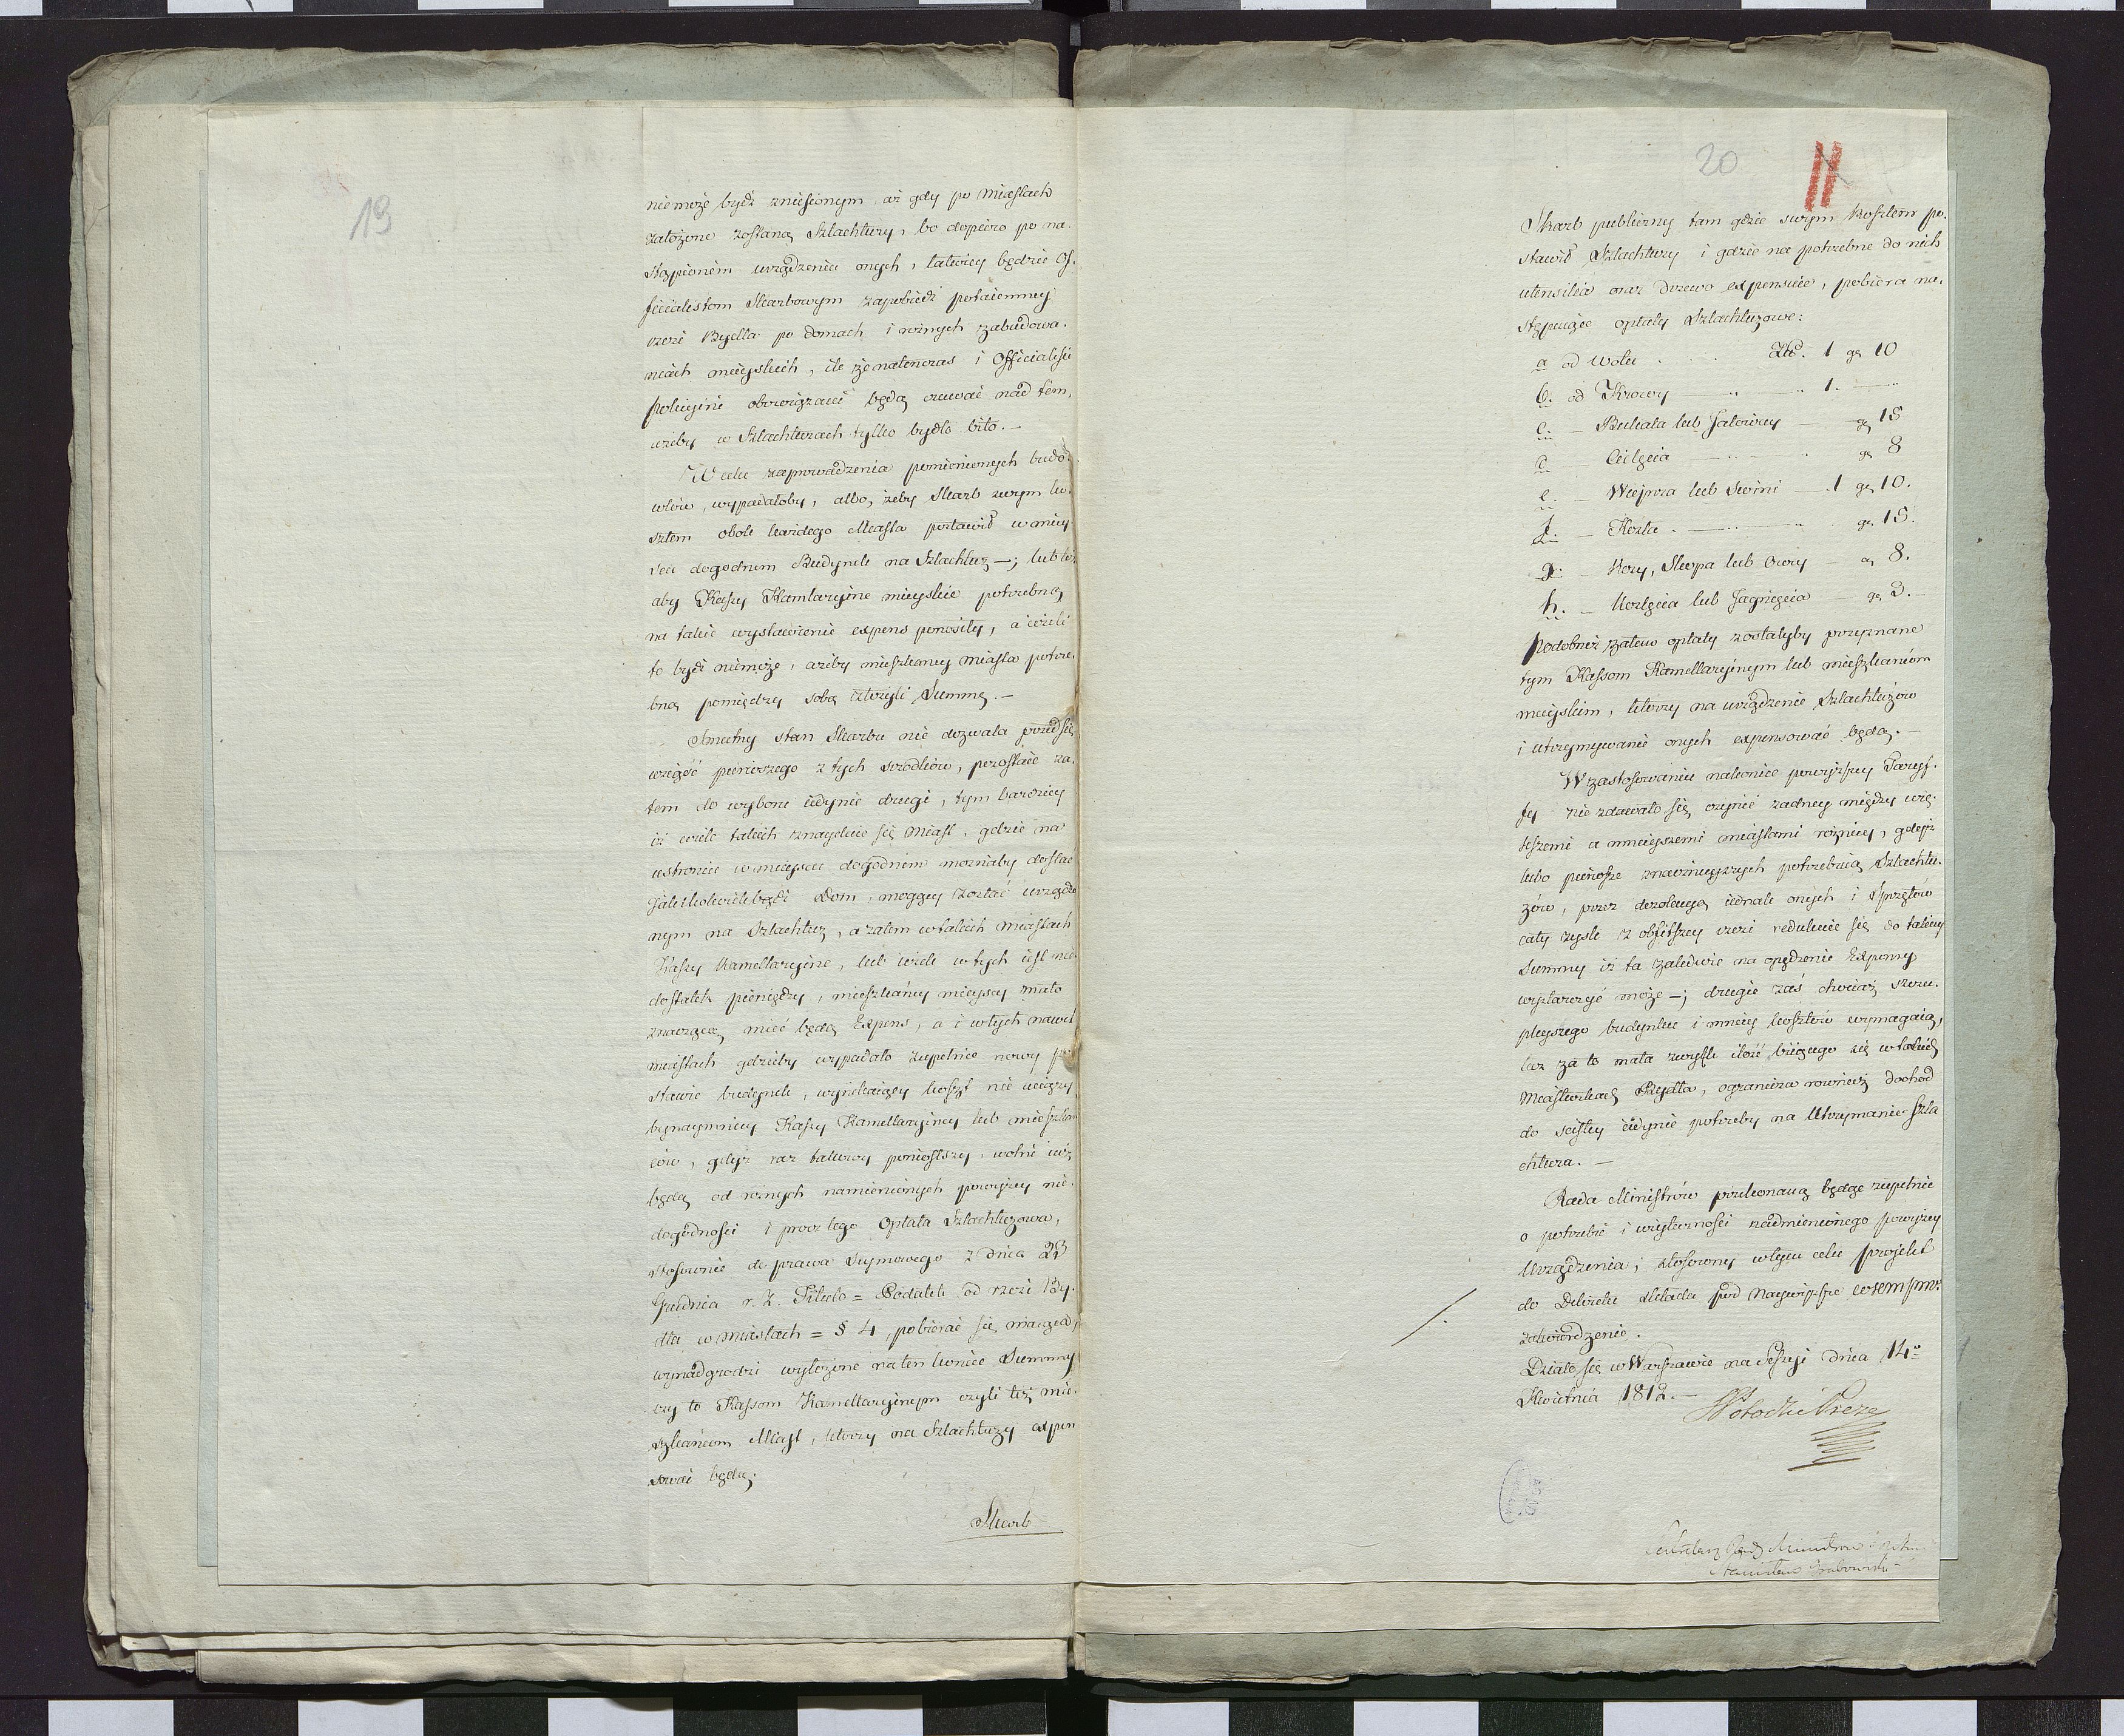 19
niemoże bydź zniesionym, aż gdy po Miastach
założone zostaną Szlachtuzy, bo dopiero po na-
stąpionem urządzeniu onych, łatwiey będzie Of-
ficialistom Skarbowym zapobiedz potaiemney
rzezi Bydła po domach i rożnych zabudowa-
niach mieyskich, ile że natenczas i Officialiści
policyini obowiązani będą czuwać nad tem,
ażeby w Szlachtuzach tylko bydło bito.—
W celu zaprowadzenia pomienionych budo-
wlow, wypadałoby, albo, żeby Skarb swym ko-
sztem obok każdego Miasta postawił w miey-
scu dogodnem Budynek na Szlachtuz—; lub też
aby Kassy Kamlaryine mieyskie potrzebną
na takie wystawienie expens ponosiły, a ieżeli
to bydź niemoże, ażeby mieszkancy miasta potrze-
bną pomiędzy sobą złożyli Summę.—
Smutny stan Skarbu nie dozwala przedsię-
wziąść pierwszego z tych srzodków, pozostaie za-
tem do wyboru iedynie drugi, tym bardziey
iż wiele takich znayduie się Miast, gdzie na
ustroniu w mieyscu dogodnem możnaby dostać
iakikolwiekbądź Dom, mogący zostać urządzo-
nym na Szlachtuz, a zatem w takich Miastach
Kassy Kamellaryine, lub ieżeli w tych iest nie-
dostatek pieniędzy, mieszkańcy mieyscy mało
znaczącą mieć będą Expens, a i w tych nawet
miastach gdzieby wypadało zupełnie nowy po-
stawić budynek, wynikaiący koszt nie uciąży
bynaymniey Kassy Kamellaryiney lub mieszkań-
ców, gdyż raz takowy poniosłszy, wolni iuż
będą od rożnych namienionych powyżey nie-
dogodności i procz tego Opłata Szlachtuzowa,
stosownie do prawa Seymowego z dnia 23
Grudnia r. z. Titulo = Podatek od rzezi By-
dła w miastach = § 4, pobierać się maiąca,
wynadgrodzi wyłożone na ten koniec Summy
czy to Kassom Kamellaryinym czyli też mie-
szkańcom Miast, ktorzy na Szlachtuzy expen-
sować będą.
Skarb
20
Skarb publiczny tam gdzie swym kosztem po-
stawił Szlachtuzy i gdzie na potrzebne do nich
utensilia oraz Drzewo expensuie, pobiera na-
stępuiące opłaty Szlachtuzowe:
a od Wołu . . Zło. 1 gr 10
b. od Krowy — „ — „ 1. —
c. — Buhaia lub Jałowicy — gr 15
d — Cielęcia — „ — gr 8
e. — Wieprza lub Swini — 1 gr 10.
f. — Kozła . — „ — gr 15.
g. — Kozy, Skopa lub Owcy — gr 8.
h. — Kozlęcia lub Jagnięcia — gr 3.—
Podobnież zatem opłaty zostałyby przyznane
tym Kassom Kamellaryinym lub mieszkaniom
mieyskim, ktorzy na urządzenie Szlachtuzów
i utrzymywanie onych expensować będą.—
W zastosowaniu nakoniec powyższey Taryf-
fy nie zdawało się czynić żadney między wię-
kszemi a mnieyszemi miastami rożnicy, gdyż
lubo pierwsze znacznieyszych potrzebuią Szlachtu-
zów, przez dezolacyą iednak onych i Sprzętów
cały zysk z obfitszey rzezi redukuie się do takiey
Summy iż ta zaledwie na opędzenie Expensy
wystarczyć może—; drugie zaś chociaż szczu-
pleyszego budynku i mniey kosztów wymagaią,
lecz za to mała zwykle ilość biiącego się w takich
Miasteczkach Bydła, ogranicza rownież dochód
do scisłey iedynie potrzeby na Utrzymanie Szla-
chtuza.—
Rada Ministrów przekonaną będąc zupełnie
o potrzebie i użyteczności nadmienionego powyżey
Urządzenia; stosowny w tym celu projekt
do Dekretu składa pod Naywyższe
zatwierdzenie.
Działo się w Warszawie na Sessyi dnia 14o
Kwietnia 1812.—
Potocki Prezes
Sekretarz Rady Ministrow
Stanisław Grabowski